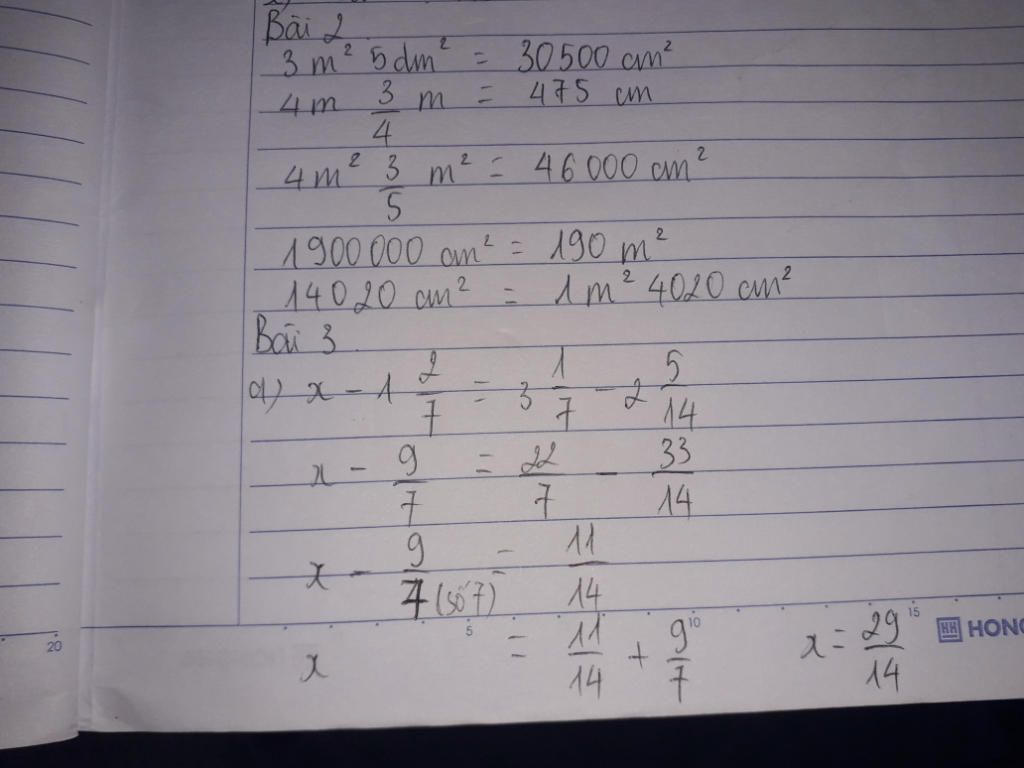 Bài 2
3 m² 5 dm² = 30500 cm²
4m 3/4 m = 475 cm
4m² 3/5 m² = 46000 cm²
1900000 cm² = 190 m²
14020 cm² = 1m² 4020 cm²
Bài 3
a) x - 1 2/7 = 3 1/7 - 2 5/14
x - 9/7 = 22/7 - 33/14
x - 9/7 (số 7) = 11/14
x = 11/14 + 9/7 x = 29/14
20 5 10 15 HONG